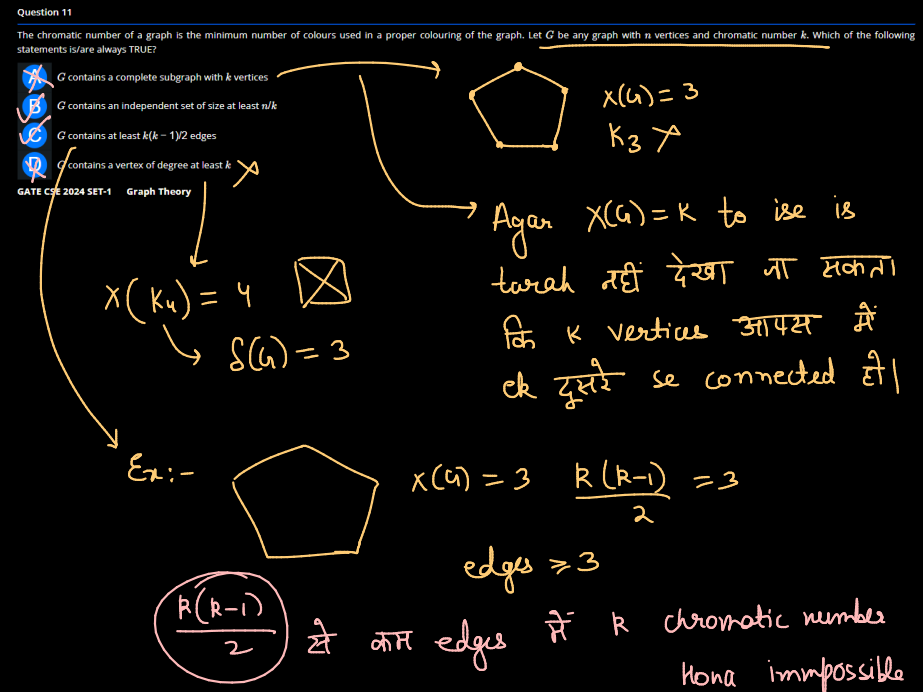 Question 11
The chromatic number of a graph is the minimum number of colours used in a proper colouring of the graph. Let G be any graph with n vertices and chromatic number k. Which of the following
statements is/are always TRUE?
A G contains a complete subgraph with k vertices
B G contains an independent set of size at least n/k
C G contains at least k(k − 1)/2 edges
D G contains a vertex of degree at least k
GATE CSE 2024 SET-1 Graph Theory
X(G) = 3
K3
Agar X(G) = K to ise is
tarah नहीं देखा जा सकता
कि K vertices आपस में
ek दूसरे se connected हो।
X(K4) = 4
δ(G) = 3
Ex:-
X(G) = 3 k(k-1)/2 = 3
edges ≥ 3
k(k-1)/2 से कम edges में k chromatic number
Hona immpossible